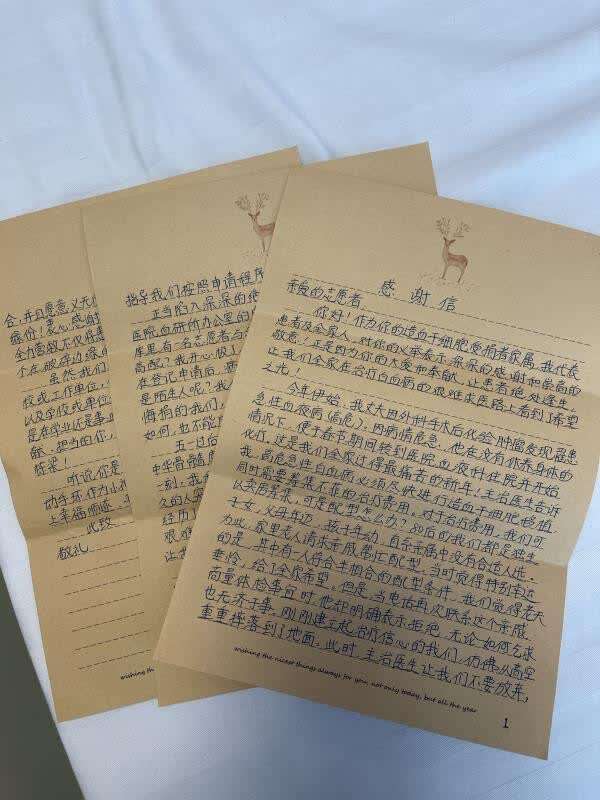 感谢信
亲爱的志愿者
你好！作为你的造血干细胞受捐者家属，我代表
患者及全家人，对你的义举表示深深的感谢和崇高的
敬意！正是因为你的大爱和奉献，让患者绝处逢生，
让我们全家在治疗白血病的艰难求医路上看到了希望
之光！
今年伊始，我丈夫因外科手术后化验肿瘤发现罹患
急性血液病（高危），因病情危急，他在没有休养身体的
情况下，便于春节期间转到医院血液科住院并开始
化疗，这是我们全家过得最痛苦的新年！主治医生告诉
我，高危急性白血病必须尽快进行造血干细胞移植
同时需要筹集不菲的治疗费用。对于治疗费用，我们可
以卖房筹集，可是配型怎么办？80后的我们都是独生
子女，父母年迈，孩子年幼，直系亲属中没有合适人选。
为此，家里老人请求亲戚帮忙配型，当时觉得特别幸运
的是，其中有一人符合半相合的配型条件。我们觉得老天
垂怜，给了全家希望。但是，当电话再次联系这个亲戚
商量体检事宜时，他却明确表示拒绝，无论如何乞求
也无济于事。刚刚建立起治疗信心的我们，仿佛从高空
重重摔落到了地面。此时，主治医生让我们不要放弃，
wishing the nicest things always for you, not only today, but all the year
1
指导我们按照申请程序
正当陷入深深的绝
医院血研所办公室的
库里有一名志愿者与
高配？我开心极了
在登记申请后，
是陌生人呢？我
悔捐的我们，
如何，也不能
五一过后
中华骨髓库
一刻，我
久的人突
经历
艰难
让我
wishing
合，并且愿意义无
缘份！衷心感谢
全的善款不仅将患
个在破碎边缘的
虽然我们
校或工作单位，
以及学校或单位
是在学业还是事
献、担当的你，
听说你是
动手环作为小礼
上幸福顺遂，平
此致
敬礼
wishing the